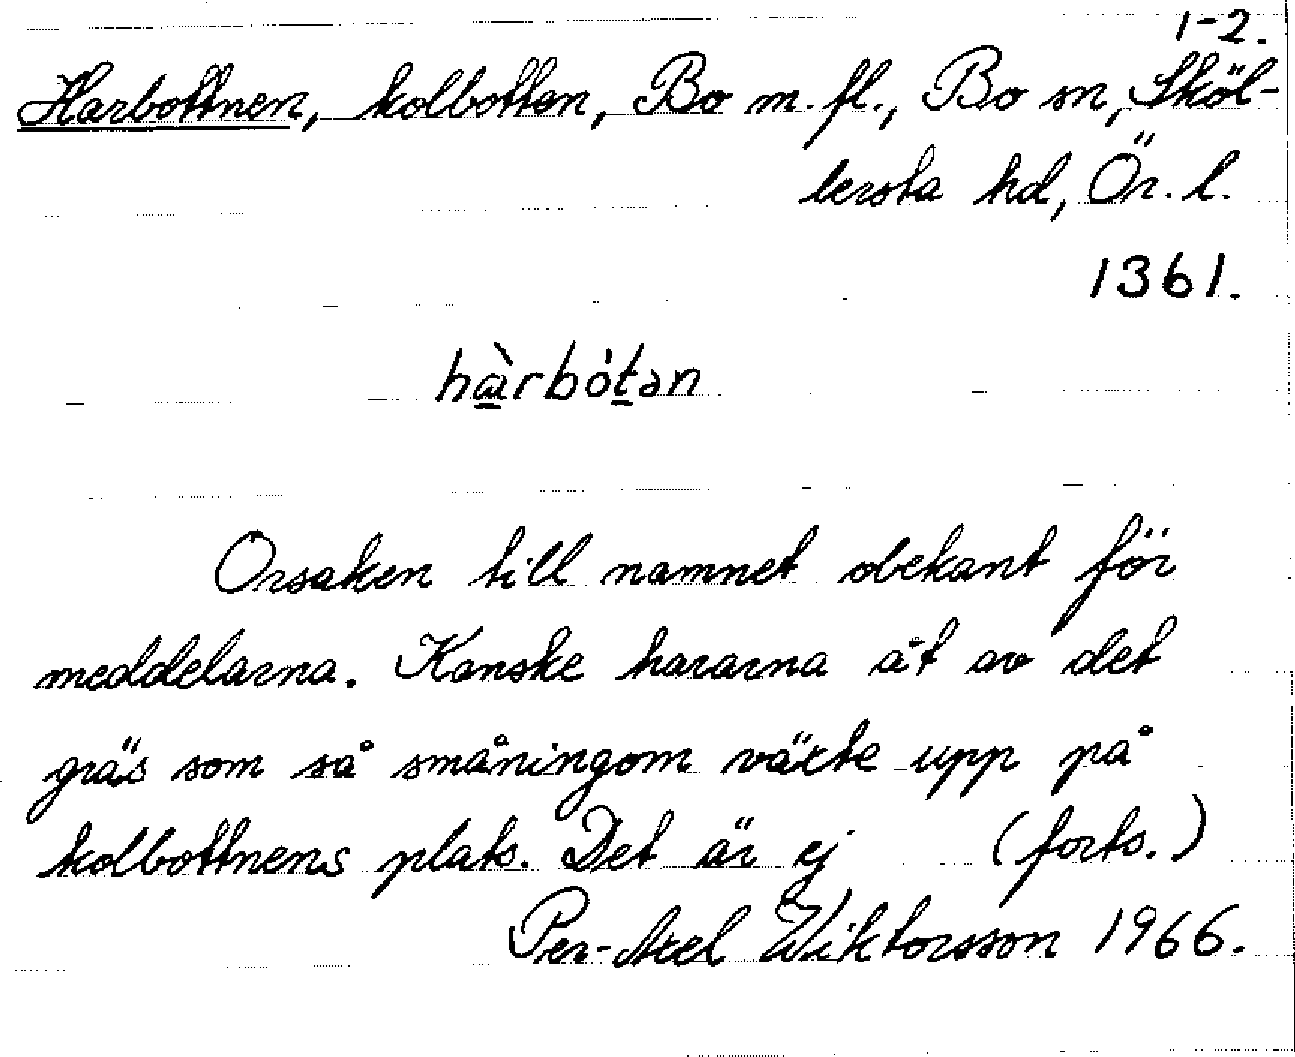 1-2.
Harbottnen, kolbotten, Bo m. fl., Bo sn, Sköl-
lersta hd, Ör. l.
1361.
hàrbótən
Orsaken till namnet obekant för
meddelarna. Kanske hararna åt av det
gräs som så småningom växte upp på
kolbottnens plats. Det är ej (forts.)
Per-Axel Wiktorsson 1966.